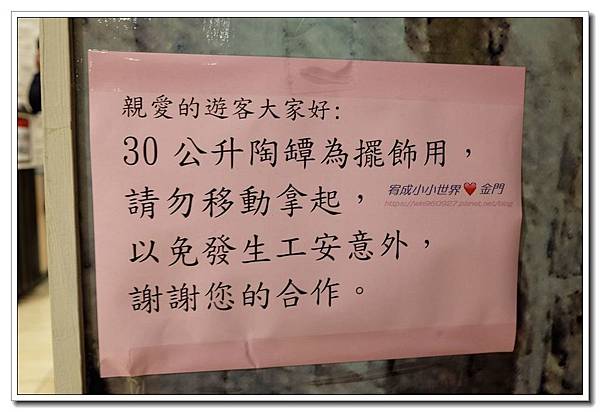 親愛的遊客大家好:
30 公升陶罈為擺飾用，
請勿移動拿起，
以免發生工安意外，
謝謝您的合作。
宥成小小世界❤金門